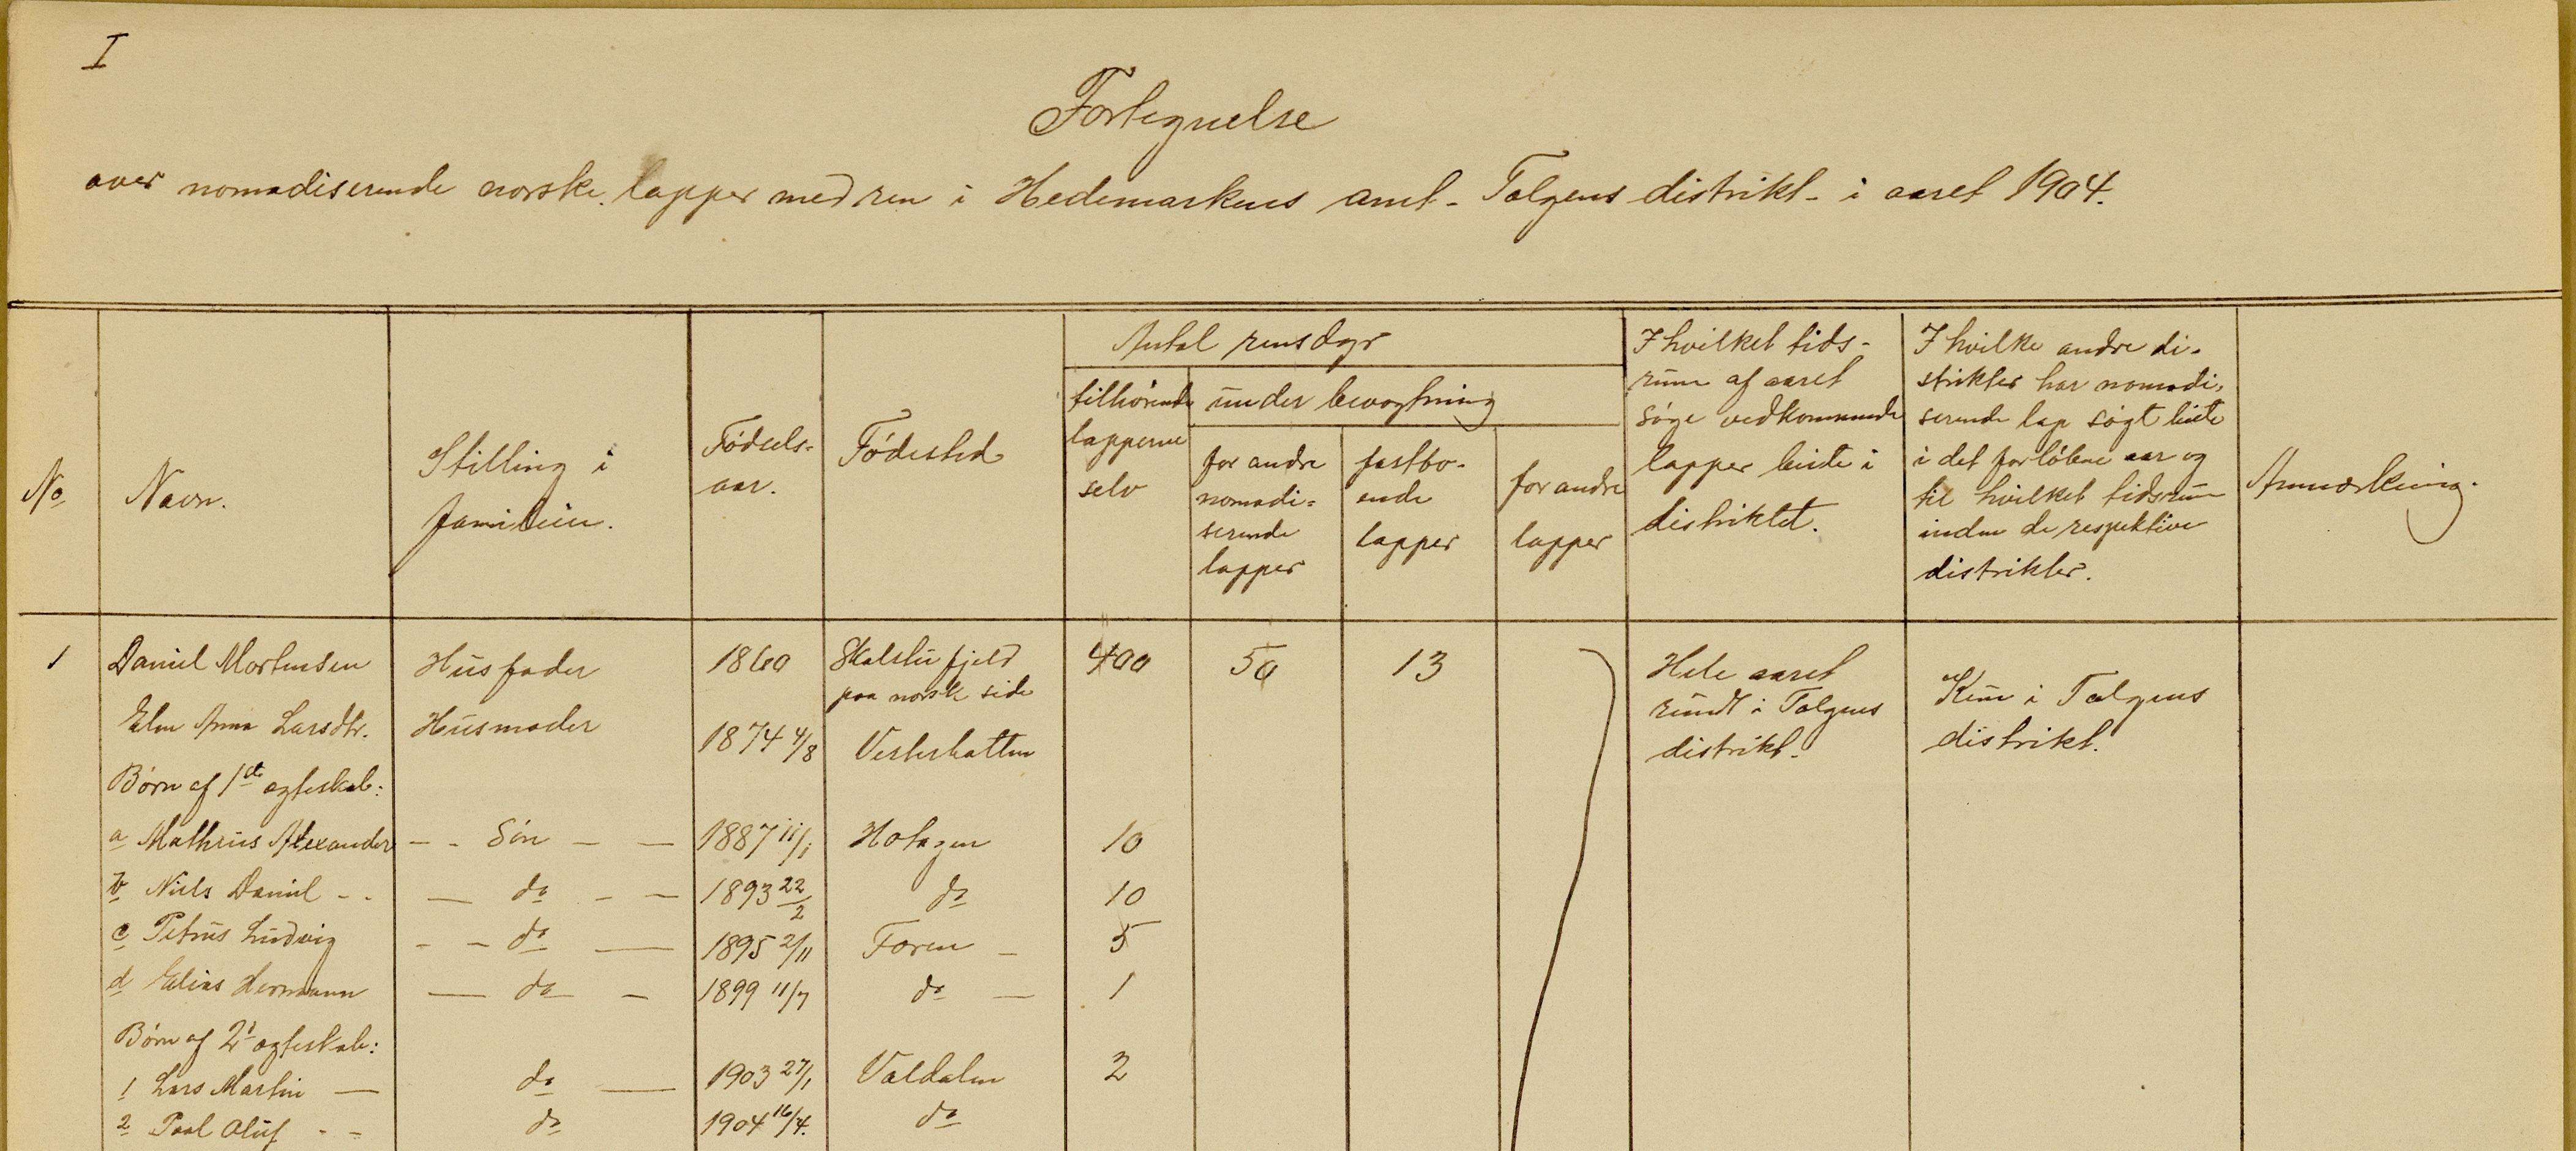 I
Fortegnelse
over nomadiserende norske lapper med ren i Hedemarkens amt - Tolgens distrikt - i aaret 1904.
No
Navn.
Stilling i
familien.
Fødsels-
aar.
Fødested
Antal rensdyr
tilhørende
lapperne
selv
under bevogtning
for andre
nomadi-
serende
lapper
fastbo-
ende
lapper
for andre
lapper
I hvilket tids-
rum af aaret
søge vedkommende
lapper beite i
distriktet.
I hvilke andre di-
strikter har nomadi-
serende lap søgt beite
i det forløbne aar og
til hvilket tidsrum
inden de respektive
distrikter.
Anmærkning.
1 Daniel Mortensen Husfader 1860 fjeld 400 50 13 Hele aaret
paa norsk side
rundt i Tolgens
distrikt.
Kun i Tolgens
distrikt.
Anna Larsdtr. Husmoder 1874 4/8
Børn af 1ste ægteskab:
a Mathius Alexander - - Søn - - 1887 11/1 Hotagen 10
b Niels Daniel - - - do - - 1893 22/2 do 10
c Petrus Ludvig - - do - 1895 2/11 Foren - 5
d Elias Hermann - do - 1899 11/7 do - 1
Børn af 2t ægteskab:
1 Lars Martin - do - 1903 27/1 Valdalen 2
2 Paal Oluf - - do 1904 16/4. do